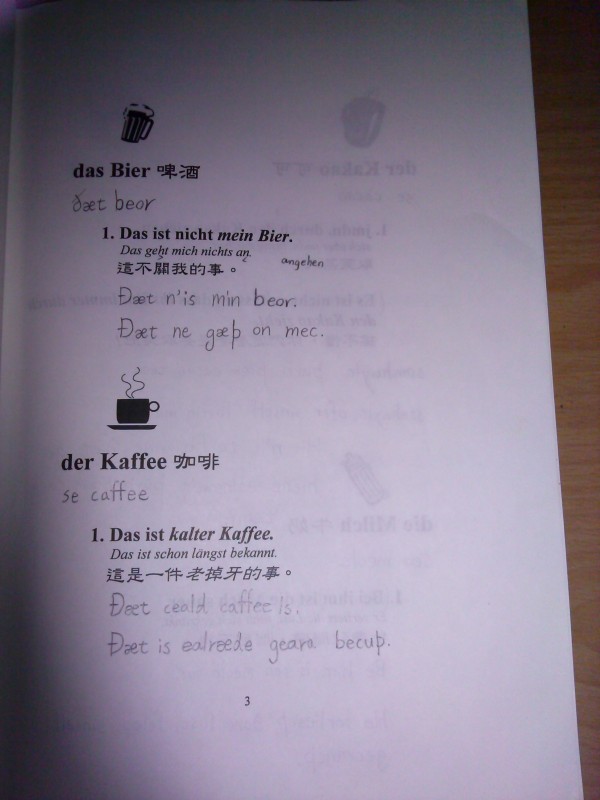 das Bier 啤酒
ðæt beor
1. Das ist nicht mein Bier.
Das geht mich nichts an.
angehen
這不關我的事。
Ðæt n'is min beor.
Ðæt ne gæþ on mec.
der Kaffee 咖啡
se caffee
1. Das ist kalter Kaffee.
Das ist schon längst bekannt.
這是一件老掉牙的事。
Ðæt ceald caffee is.
Ðæt is ealræde geara becuþ.
3
der Kakao
die Milch